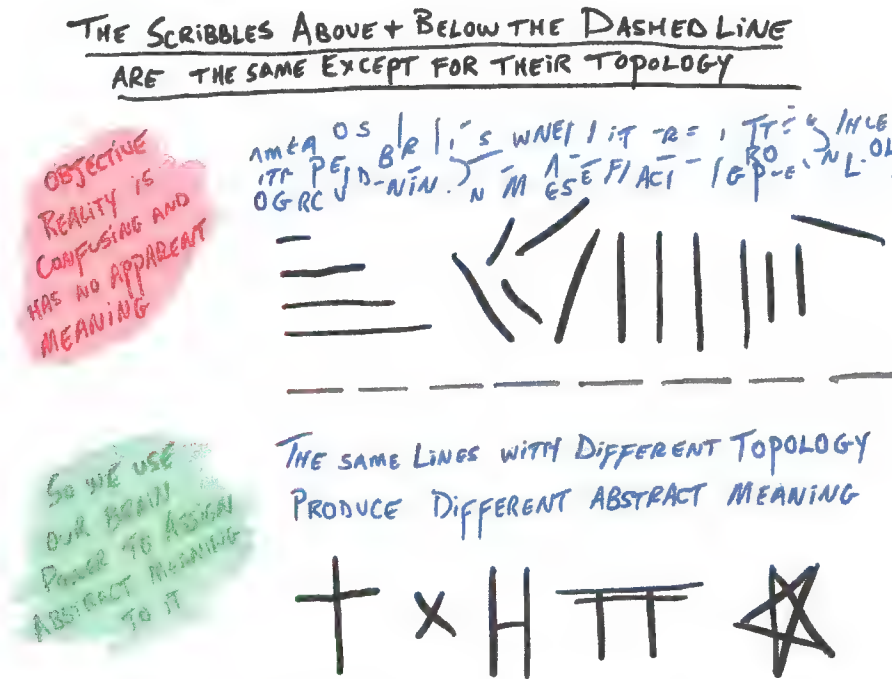 THE SCRIBBLES ABOVE + BELOW THE DASHED LINE
ARE THE SAME EXCEPT FOR THEIR TOPOLOGY
OBJECTIVE
REALITY IS
CONFUSING AND
HAS NO APPARENT
MEANING
SO WE USE
OUR BRAIN
POWER TO ASSIGN
ABSTRACT MEANING
TO IT
THE SAME LINES WITH DIFFERENT TOPOLOGY
PRODUCE DIFFERENT ABSTRACT MEANING